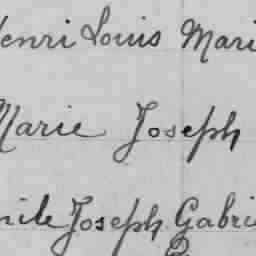 Henri Louis Mari
Marie Joseph
mile Joseph Gabri